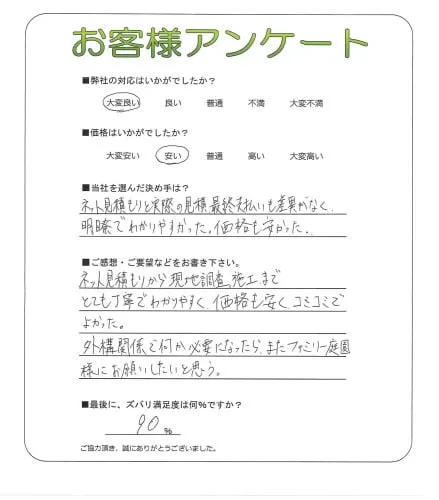 お客様アンケート
■弊社の対応はいかがでしたか？
大変良い　良い　普通　不満　大変不満
■価格はいかがでしたか？
大変安い　安い　普通　高い　大変高い
■当社を選んだ決め手は？
ネット見積もりと実際の見積、最終支払いも差異がなく、
明瞭でわかりやすかった。価格も安かった。
■ご感想・ご要望などをお書き下さい。
ネット見積もりから現地調査、施工まで
とても丁寧でわかりやすく、価格も安く、コミコミで
よかった。
外構関係で何か必要になったら、またファミリー庭園
様にお願いしたいと思う。
■最後に、ズバリ満足度は何%ですか？
90 %
ご協力頂き、誠にありがとうございました。